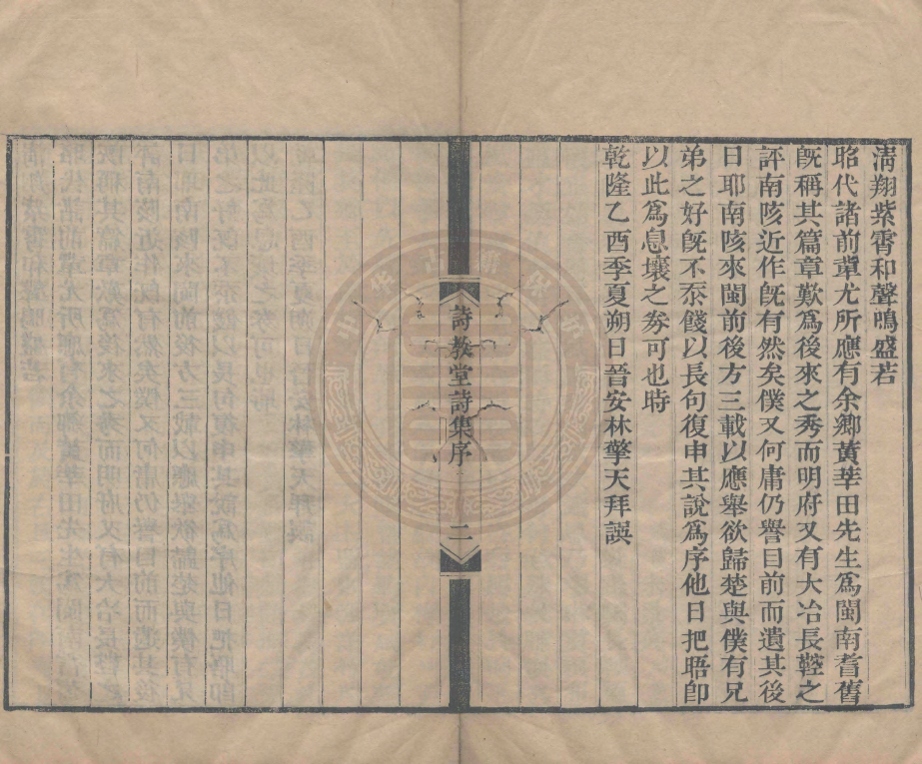 淸翔紫霄和聲鳴盛若
昭代諸前輩尤所應有余鄉黃莘田先生爲閩南耆舊
旣稱其篇章歎爲後來之秀而明府又有大冶長鞚之
評南陔近作旣有然矣僕又何庸仍譽目前而遺其後
日耶南陔來閩前後方三載以應舉欲歸楚與僕有兄
弟之好旣不忝餞以長句復申其說爲序他日把晤卽
以此爲息壤之劵可也時
乾隆乙酉季夏朔日晉安林擎天拜譔
詩教堂詩集序
二